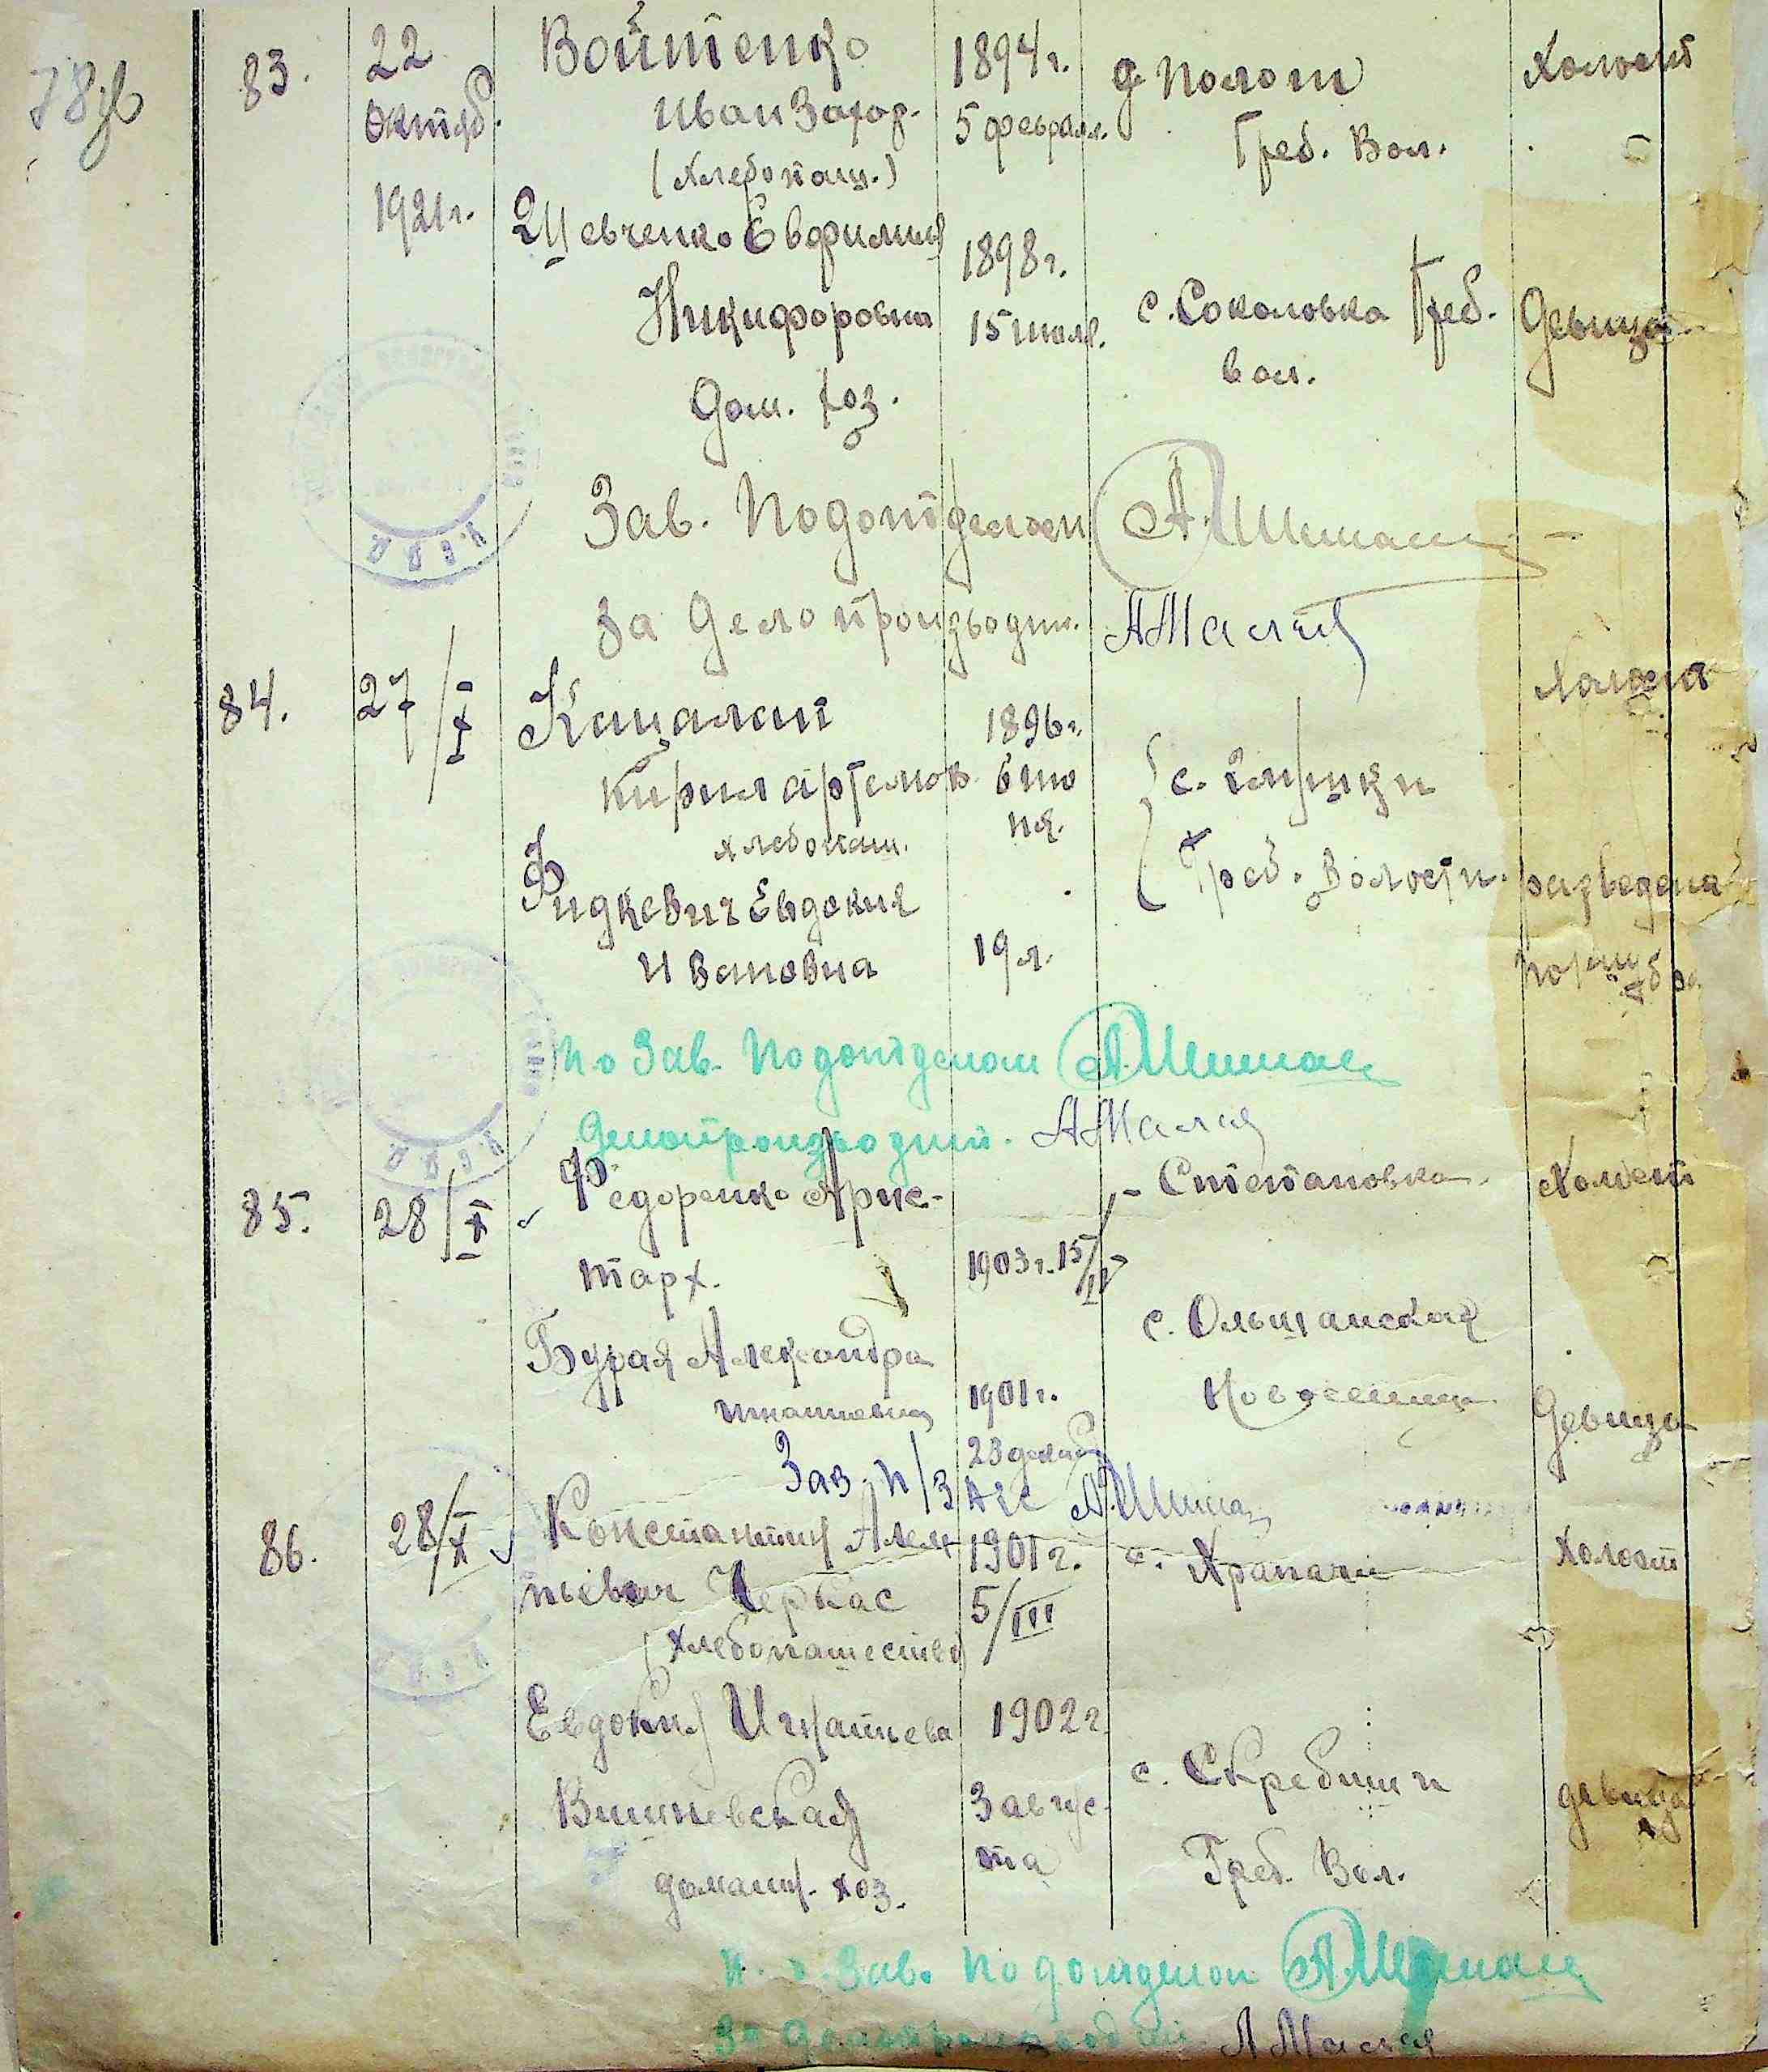 83.
22
Октяб.
1921г.
Войтенко
Иван Захар.
(хлебопаш.)
1894г.
5 феврал.
д. Полог
Греб. Вол.
Холост
Шевченко Евфимия
Никифоровна
Дом. хоз.
1898г.
15 июля.
с. Соколовка Греб.
вол.
Девица
Зав. Подотделом
За Делопроизводит. А Малый
84.
27/X
Кацалап
Кирил Артемов
хлебопаш.
1896г.
6 ию
ня.
с.
Греб. Волости.
Холост
Фидкевич Евдокия
Ивановна
19 л.
разведена
И.о Зав. Подотделом
Делопроизводит. А Малый
85.
28/X
Федоренко Арис-
тарх.
1903г. 15/IV
Степановка.
Холост
Бурая Александра
Игнатьевна
1901г.
23 декаб
с. Ольшанская
Новоселица
Девица
Зав. п/з АГС
86.
28/X
Константин
Черкас
(хлебопашество)
1901г.
5/III
с. Храпачи
Холост
Евдокия Игнатьева
Вишневская
домашн. хоз.
1902г.
3 авгус-
та
с. Скребиши
Греб. Вол.
девица
И. о. Зав. Подотделом
За Делопроизводит. А Малый